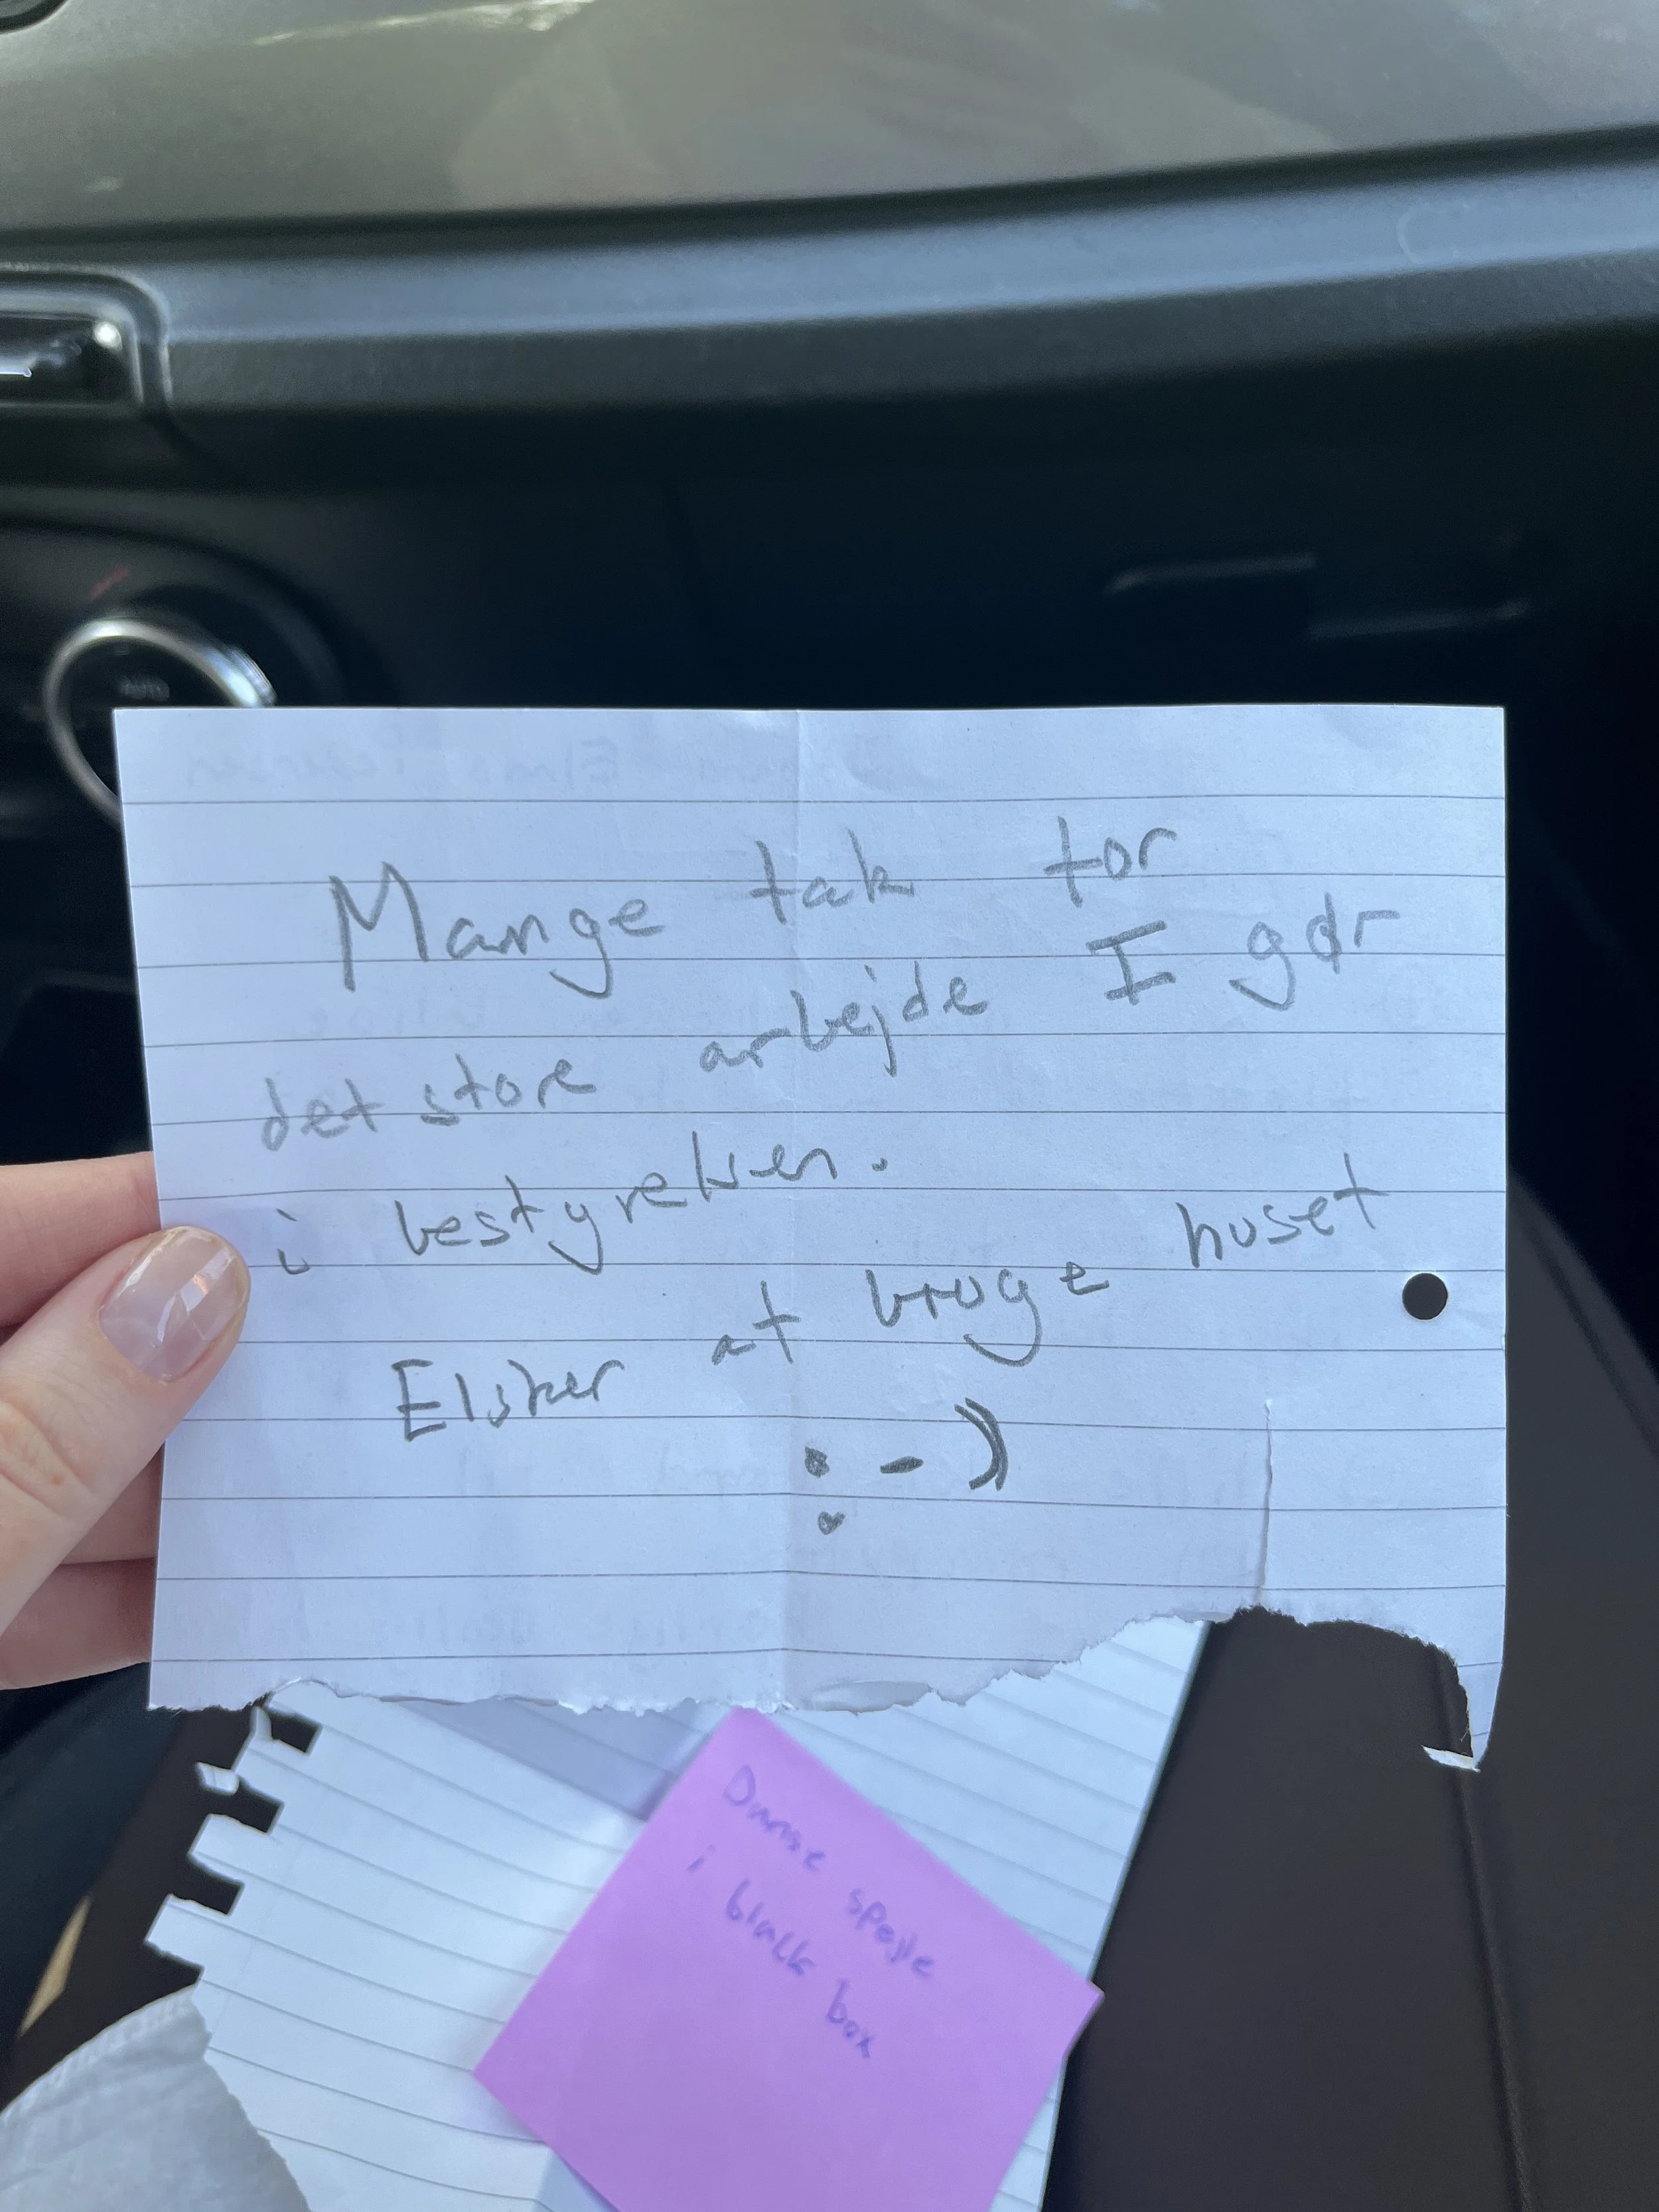 AUTO
Mange tak for
det store arbejde I gør
i bestyrelsen.
Elsker at bruge huset
:-)
Danse spejle
i black box